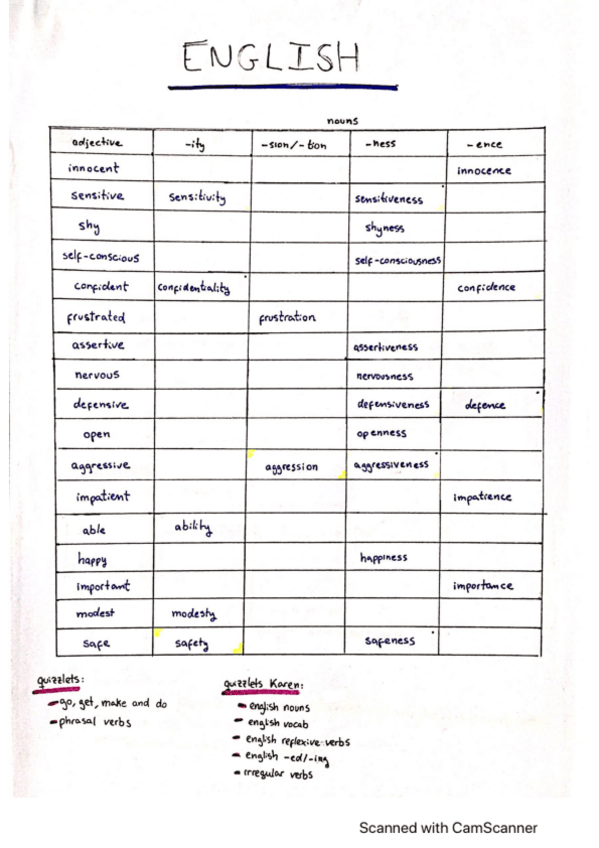 ENGLISH
nouns
adjective -ity -sion/-tion -ness -ence
innocent innocence
sensitive sensitivity sensitiveness
shy shyness
self-conscious self-consciousness
confident confidentality confidence
frustrated frustration
assertive assertiveness
nervous nervousness
defensive defensiveness defence
open openness
aggressive aggression aggressiveness
impatient impatience
able ability
happy happiness
important importance
modest modesty
safe safety safeness
quizzlets:
- go, get, make and do
- phrasal verbs
quizzlets Karen:
- english nouns
- english vocab
- english reflexive verbs
- english -ed/-ing
- irregular verbs
Scanned with CamScanner